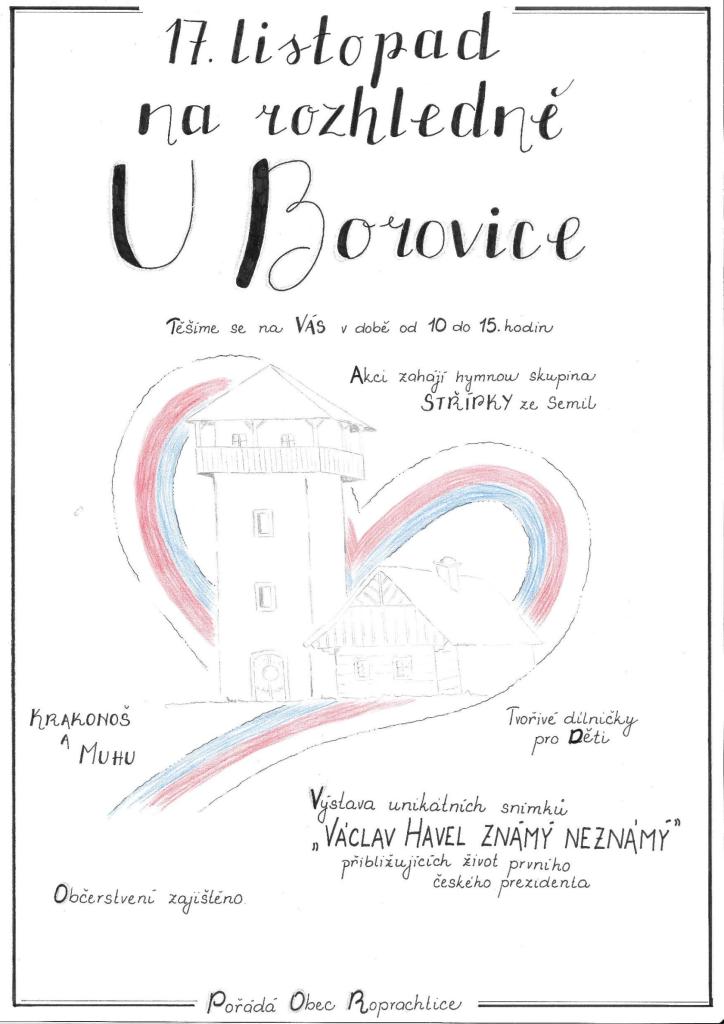 17. listopad
na rozhledně
U Borovice
Těšíme se na VÁS v době od 10 do 15. hodin
Akci zahájí hymnou skupina
STŘÍPKY ze Semil
KRAKONOŠ
A
MUHU
Tvořivé dílničky
pro Děti
Výstava unikátních snímků
„VÁCLAV HAVEL ZNÁMÝ NEZNÁMÝ"
přibližujících život prvního
českého prezidenta
Občerstvení zajištěno.
Pořádá Obec Roprachtice